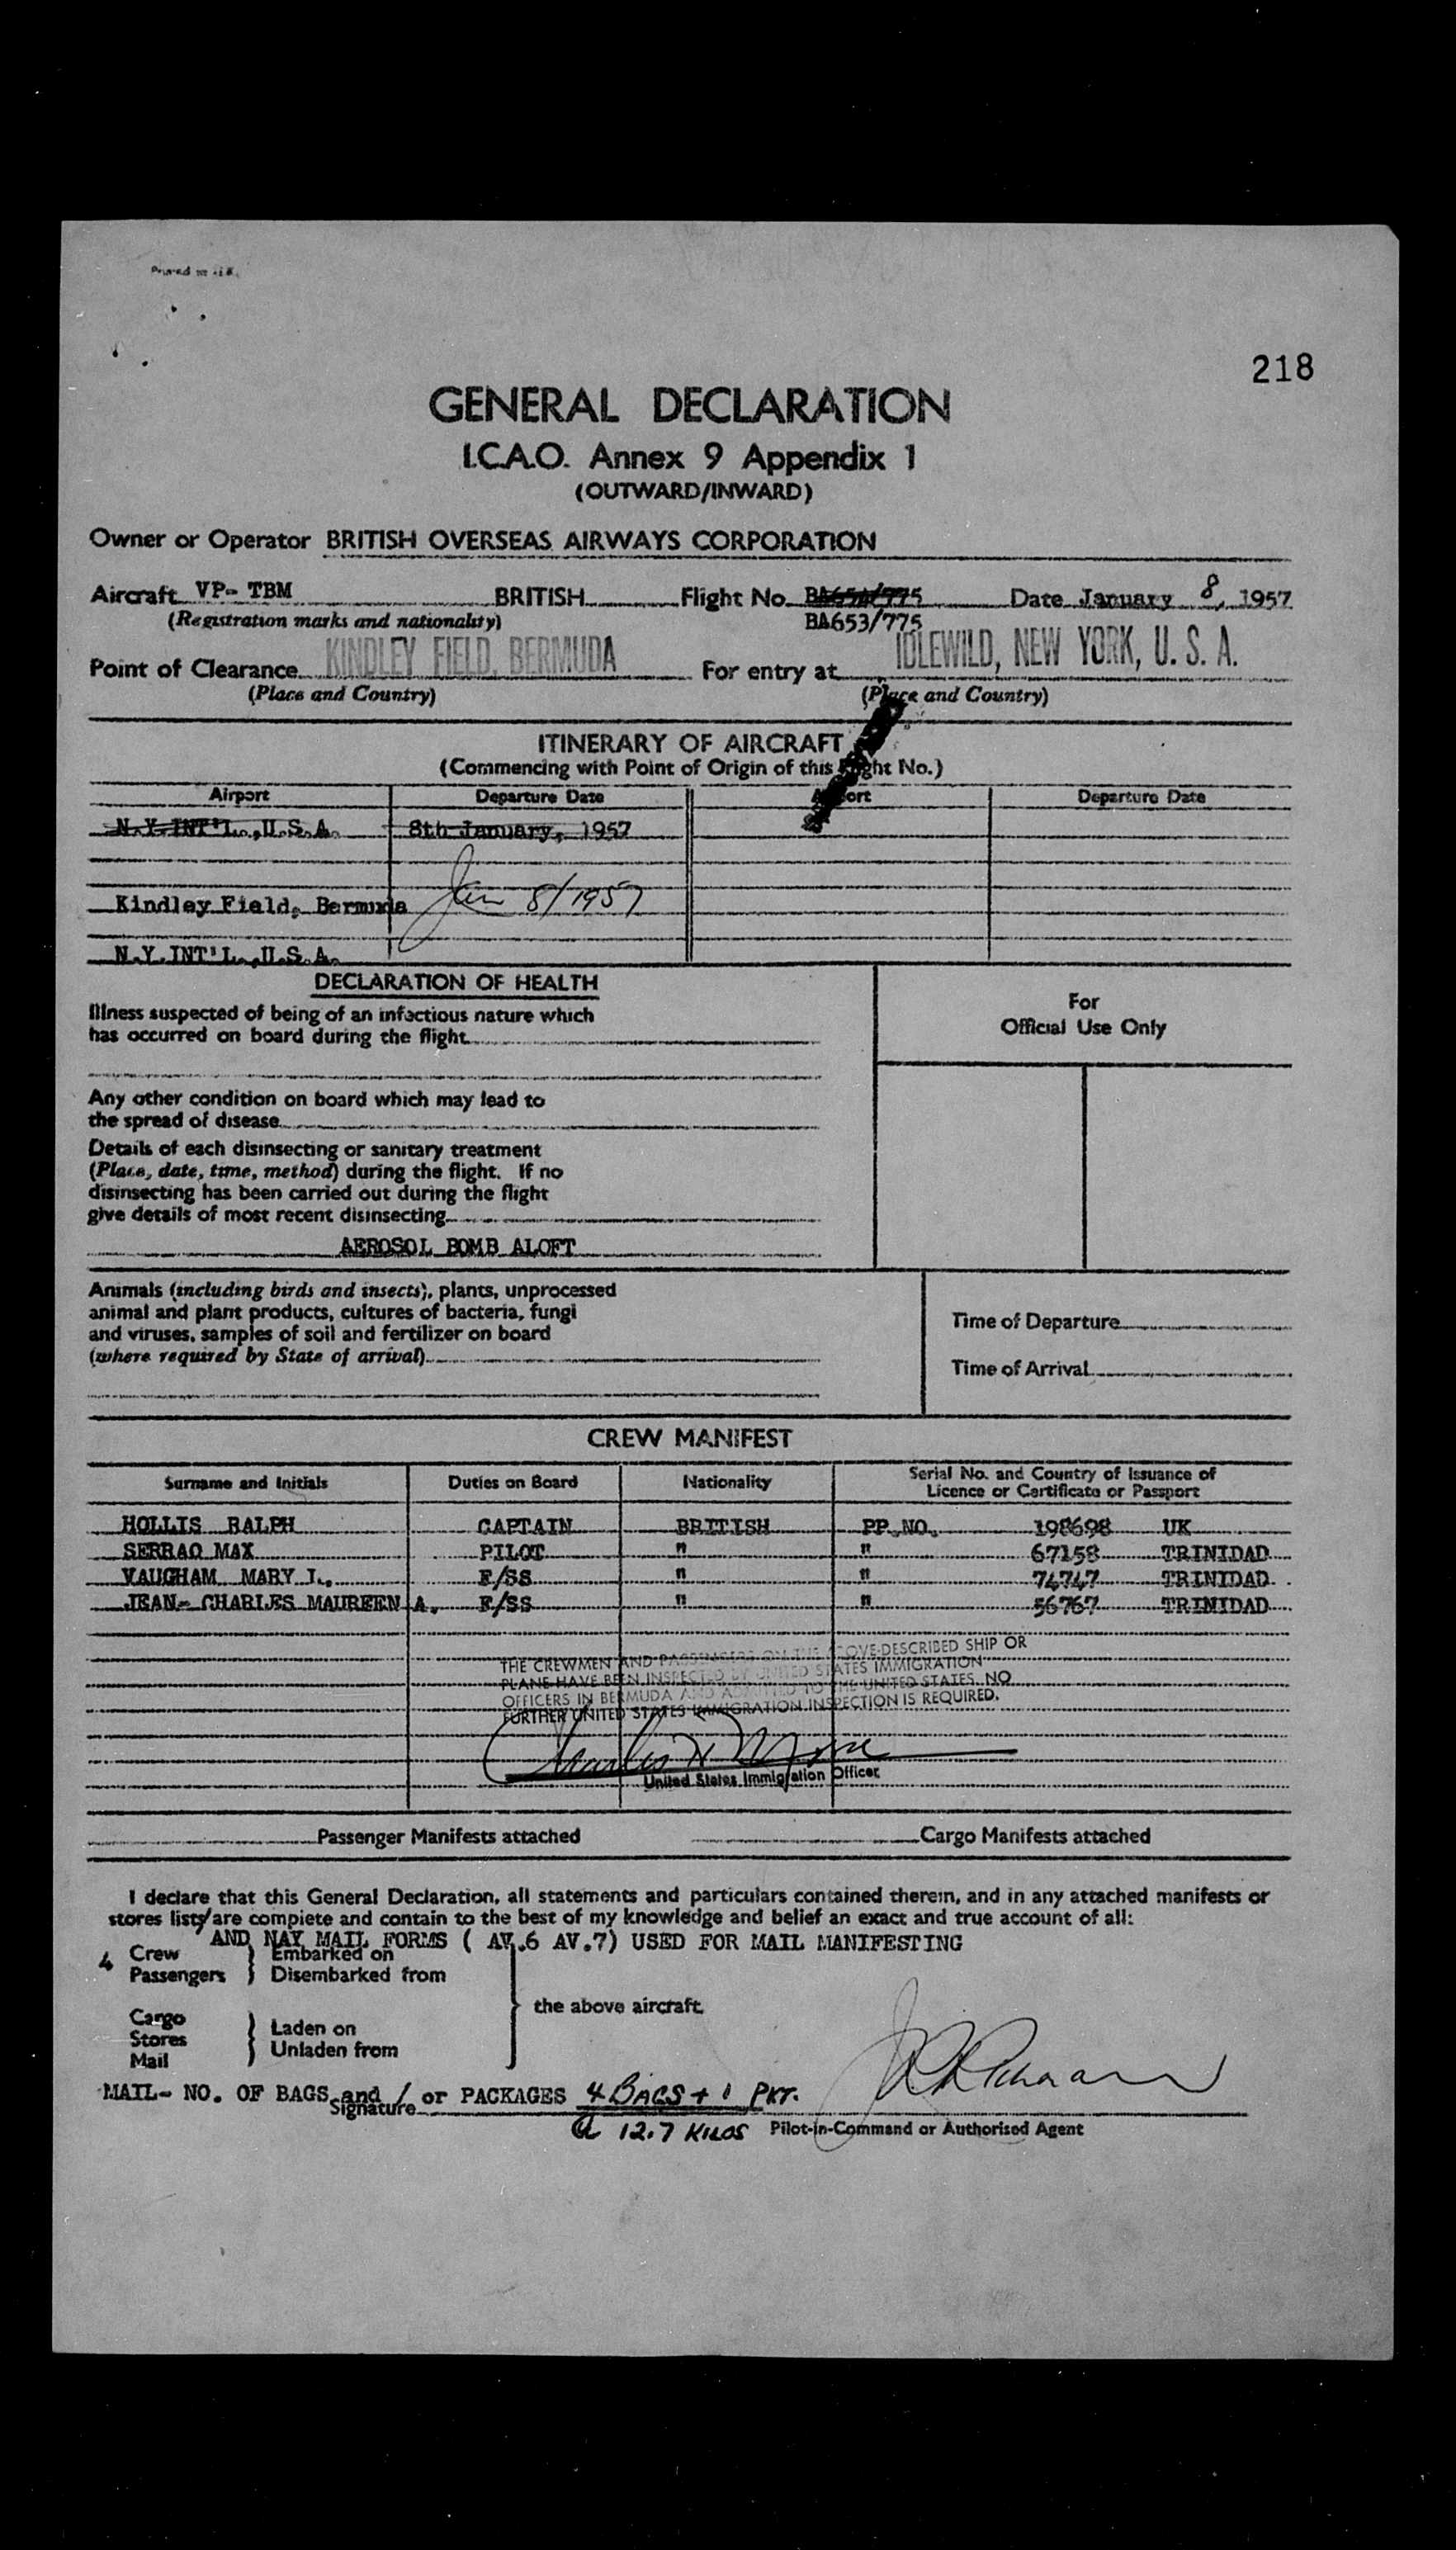 218
GENERAL DECLARATION
I.C.A.O. Annex 9 Appendix 1
(OUTWARD/INWARD)
Owner or Operator BRITISH OVERSEAS AIRWAYS CORPORATION
Aircraft VP- TBM BRITISH Flight No. BA654/775 Date January 8, 1957
(Registration marks and nationality) BA653/775
Point of Clearance KINDLEY FIELD, BERMUDA For entry at IDLEWILD, NEW YORK, U. S. A.
(Place and Country) (Place and Country)
ITINERARY OF AIRCRAFT
(Commencing with Point of Origin of this Flight No.)
Airport Departure Date Airport Departure Date
N.Y.INT'L.,U.S.A. 8th January, 1957
Kindley Field, Bermuda Jan 8/1957
N.Y.INT'L.,U.S.A.
DECLARATION OF HEALTH
For
Official Use Only
Illness suspected of being of an infectious nature which
has occurred on board during the flight
Any other condition on board which may lead to
the spread of disease
Details of each disinsecting or sanitary treatment
(Place, date, time, method) during the flight. If no
disinsecting has been carried out during the flight
give details of most recent disinsecting
AEROSOL BOMB ALOFT
Animals (including birds and insects), plants, unprocessed
animal and plant products, cultures of bacteria, fungi
and viruses, samples of soil and fertilizer on board
(where required by State of arrival)
Time of Departure
Time of Arrival
CREW MANIFEST
Surname and Initials Duties on Board Nationality Serial No. and Country of Issuance of
Licence or Certificate or Passport
HOLLIS RALPH CAPTAIN BRITISH PP.NO. 198698 UK
SERRAO MAX PILOT " " 67158 TRINIDAD
VAUGHAM MARY J., F/SS " " 74747 TRINIDAD
JEAN- CHARLES MAUREEN A. F/SS " " 56767 TRINIDAD
THE CREWMEN AND PASSENGERS ON THE ABOVE-DESCRIBED SHIP OR
PLANE HAVE BEEN INSPECTED BY UNITED STATES IMMIGRATION
OFFICERS IN BERMUDA AND ADMITTED TO THE UNITED STATES. NO
FURTHER UNITED STATES IMMIGRATION INSPECTION IS REQUIRED.
United States Immigration Officer
Passenger Manifests attached Cargo Manifests attached
I declare that this General Declaration, all statements and particulars contained therein, and in any attached manifests or
stores lists/are complete and contain to the best of my knowledge and belief an exact and true account of all:
AND NAY MAIL FORMS ( AV.6 AV.7) USED FOR MAIL MANIFESTING
4 Crew Embarked on
Passengers Disembarked from
the above aircraft.
Cargo
Stores Laden on
Mail Unladen from
MAIL- NO. OF BAGS and / or PACKAGES 4 BAGS + 1 PKT.
Signature
@ 12.7 KILOS Pilot-in-Command or Authorised Agent